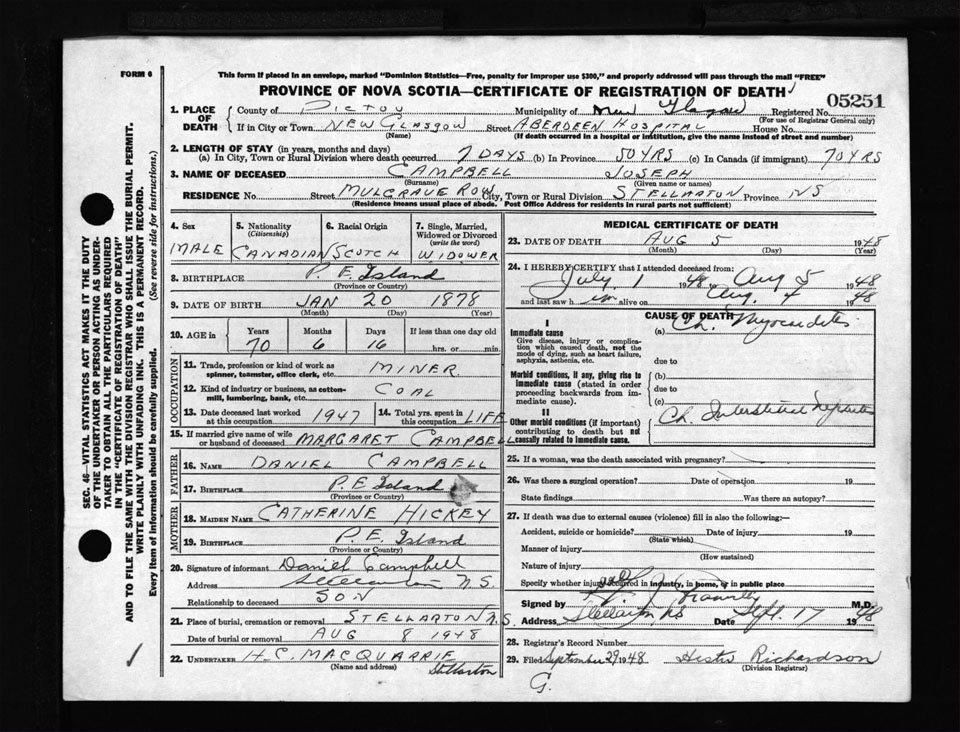 FORM 6
This form if placed in an envelope, marked "Dominion Statistics—Free, penalty for improper use $300," and properly addressed will pass through the mail "FREE"
PROVINCE OF NOVA SCOTIA—CERTIFICATE OF REGISTRATION OF DEATH
05251
1. PLACE OF DEATH
County of Pictou Municipality of New Glasgow Registered No.
(For use of Registrar General only)
If in City or Town NEW GLASGOW Street ABERDEEN HOSPITAL House No.
(Name) (If death occurred in a hospital or institution, give the name instead of street and number)
2. LENGTH OF STAY (in years, months and days)
(a) In City, Town or Rural Division where death occurred 7 DAYS (b) In Province 50 YRS (c) In Canada (if immigrant) 70 YRS
3. NAME OF DECEASED CAMPBELL JOSEPH
(Surname) (Given name or names)
RESIDENCE No. Street MULGRAVE ROW City, Town or Rural Division STELLARTON Province NS
(Residence means usual place of abode. Post Office Address for residents in rural parts not sufficient)
4. Sex
MALE
5. Nationality
(Citizenship)
CANADIAN
6. Racial Origin
SCOTCH
7. Single, Married, Widowed or Divorced
(write the word)
WIDOWER
8. BIRTHPLACE P. E. Island
(Province or Country)
9. DATE OF BIRTH JAN 20 1878
(Month) (Day) (Year)
10. AGE in
Years Months Days If less than one day old
70 6 16 hrs. or min.
OCCUPATION
11. Trade, profession or kind of work as spinner, teamster, office clerk, etc. MINER
12. Kind of industry or business, as cotton-mill, lumbering, bank, etc. COAL
13. Date deceased last worked at this occupation 1947
14. Total yrs. spent in this occupation LIFE
15. If married give name of wife or husband of deceased MARGARET CAMPBELL
FATHER
16. NAME DANIEL CAMPBELL
17. BIRTHPLACE P. E Island
(Province or Country)
MOTHER
18. MAIDEN NAME CATHERINE HICKEY
19. BIRTHPLACE P. E. Island
(Province or Country)
20. Signature of informant Daniel Campbell
Address Stellarton N.S.
Relationship to deceased SON
21. Place of burial, cremation or removal STELLARTON N.S.
Date of burial or removal AUG 8 1948
22. UNDERTAKER H. C. MACQUARRIE
(Name and address) Stellarton
MEDICAL CERTIFICATE OF DEATH
23. DATE OF DEATH AUG 5 1948
(Month) (Day) (Year)
24. I HEREBY CERTIFY that I attended deceased from:
July 1 1948 to Aug 5 1948
and last saw him alive on Aug. 4 1948
CAUSE OF DEATH
I
Immediate cause
Give disease, injury or complication which caused death, not the mode of dying, such as heart failure, asphyxia, asthenia, etc.
(a) Ch. Myocarditis
due to
Morbid conditions, if any, giving rise to immediate cause (stated in order proceeding backwards from immediate cause).
(b)
due to
(c)
II
Other morbid conditions (if important) contributing to death but not causally related to immediate cause.
Ch. Interstitial Nephritis
25. If a woman, was the death associated with pregnancy?
26. Was there a surgical operation? Date of operation 19
State findings Was there an autopsy?
27. If death was due to external causes (violence) fill in also the following:
Accident, suicide or homicide? Date of injury 19
(State which)
Manner of injury
(How sustained)
Nature of injury
Specify whether injury occurred in industry, in home, or in public place
Signed by M.D.
Address Stellarton, NS Date Sept. 17 1948
28. Registrar's Record Number
29. Filed September 29 1948 Hester Richardson
(Division Registrar)
G.
SEC. 46—VITAL STATISTICS ACT MAKES IT THE DUTY
OF THE UNDERTAKER OR PERSON ACTING AS UNDER-
TAKER TO OBTAIN ALL THE PARTICULARS REQUIRED
IN THE "CERTIFICATE OF REGISTRATION OF DEATH"
AND TO FILE THE SAME WITH THE DIVISION REGISTRAR WHO SHALL ISSUE THE BURIAL PERMIT.
WRITE PLAINLY WITH UNFADING INK. THIS IS A PERMANENT RECORD.
Every item of information should be carefully supplied. (See reverse side for instructions.)